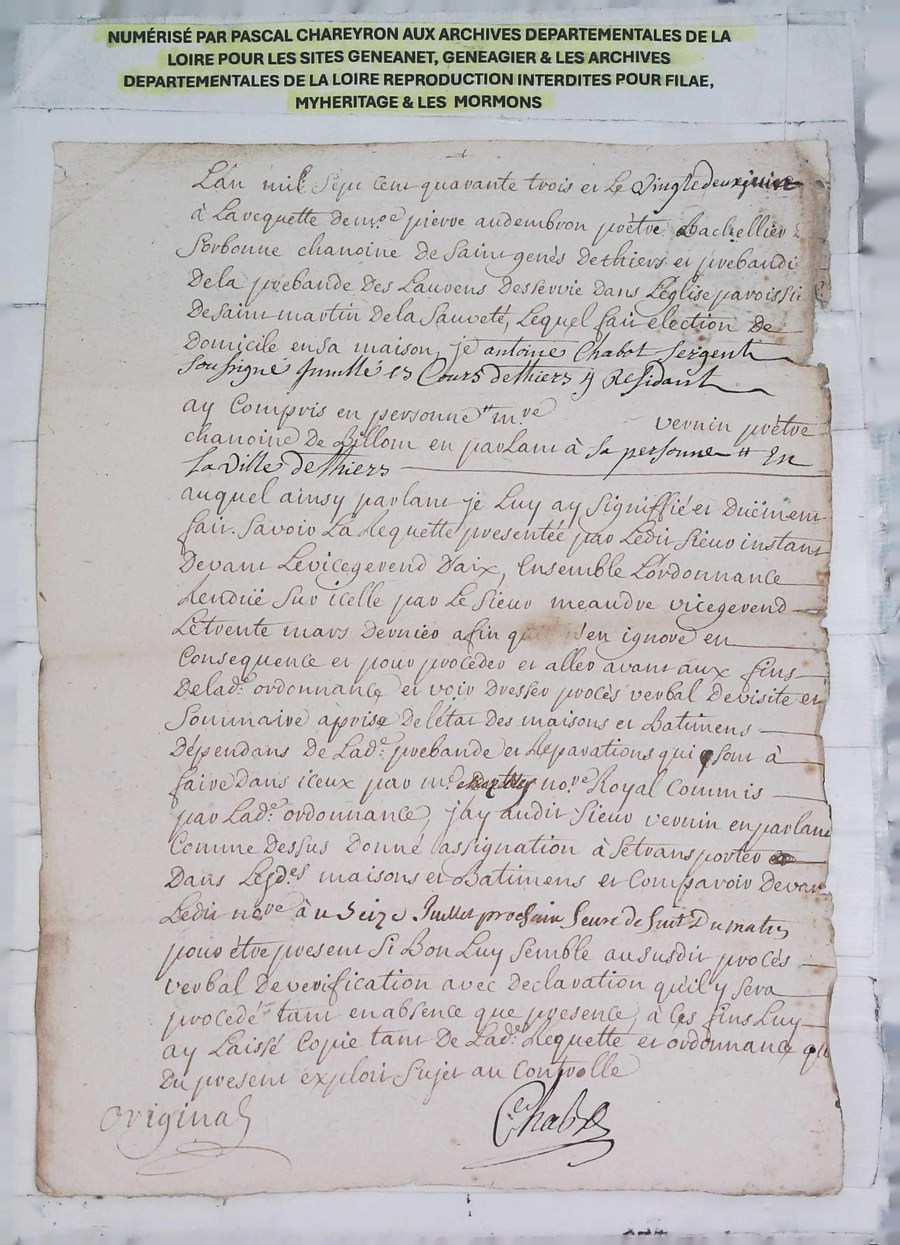 NUMÉRISÉ PAR PASCAL CHAREYRON AUX ARCHIVES DEPARTEMENTALES DE LA
LOIRE POUR LES SITES GENEANET, GENEAGIER & LES ARCHIVES
DEPARTEMENTALES DE LA LOIRE REPRODUCTION INTERDITES POUR FILAE,
MYHERITAGE & LES MORMONS
L'an mil Sept Cent quarante trois et le vingtedeux juin
à La requette de mre pierre audembron prètre Bachellier
Sorbonne chanoine de Saint genès dethiers et prebandi
De la prebande Des Laurens Desservie Dans L'église paroissi
De Saint martin De la Sauveté, Lequel fait election De
Domicile en sa maison, je antoine Chabot Sergent
soussigné Jmmtlé es Cours dethiers y Residant
ay Compris en personne mre vernin prètre
chanoine De Billom en parlant à sa personne En
La Ville dethiers
auquel ainsy parlant je Luy ay Signiffié et Duëment
fait Savoir La Requette presentée par Ledit Sieur instant
Devant Levicegerend D'aix, Ensemble L'ordonnance
Renduë Sur icelle par Le Sieur meandre vicegerend
Le trente mars Dernier afin qu'il n'en ignore en
Consequence et pour procéder et aller avant aux fins
De lade ordonnance et voir Dresser procès verbal De visite et
Sommaire aprise De l'état Des maisons et Batimens
Dépendans De Lade prebande et Reparations qui sont à
faire Dans iceux par me nore Royal Commis
par Lade ordonnance, j'ay audit Sieur vernin en parlant
Comme Dessus Donné assignation à Se transporter
Dans Lesdes maisons et Batimens et Comparoir Devan
Ledit nore au Seize Juillet prochain heure de huit Du matin
pour être present Si Bon Luy Semble au susdit procès
verbal De verification avec Declaration qu'il y Sera
procedé tant en absence que presence, à Ces fins Luy
ay Laissé Copie tant De Lade Requette et ordonnance que
Du present exploit Sujet au Controlle
Original Chabot